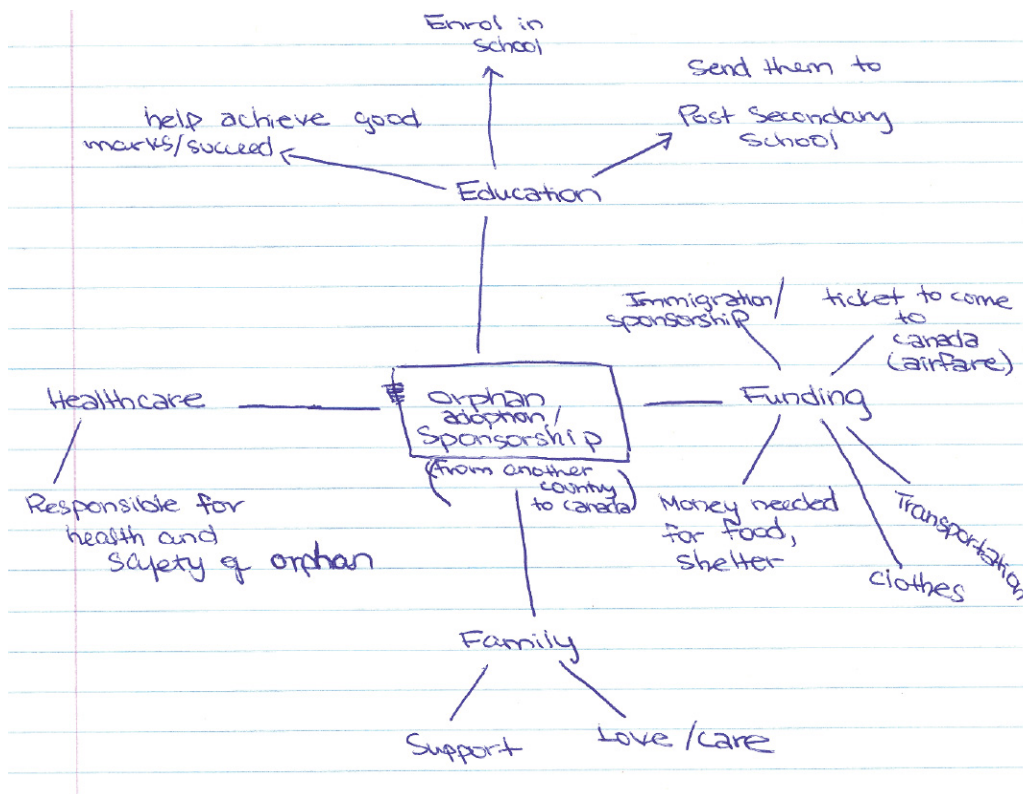 Enrol in
school
Send them to
Post Secondary
School
help achieve good
marks/succeed
Education
Immigration/
sponsorship
ticket to come
to
canada
(airfare)
Healthcare
orphan
adoption/
Sponsorship
(from another
country
to canada)
Funding
Responsible for
health and
safety of orphan
Money needed
for food,
shelter
Transportation
clothes
Family
Support
Love/care